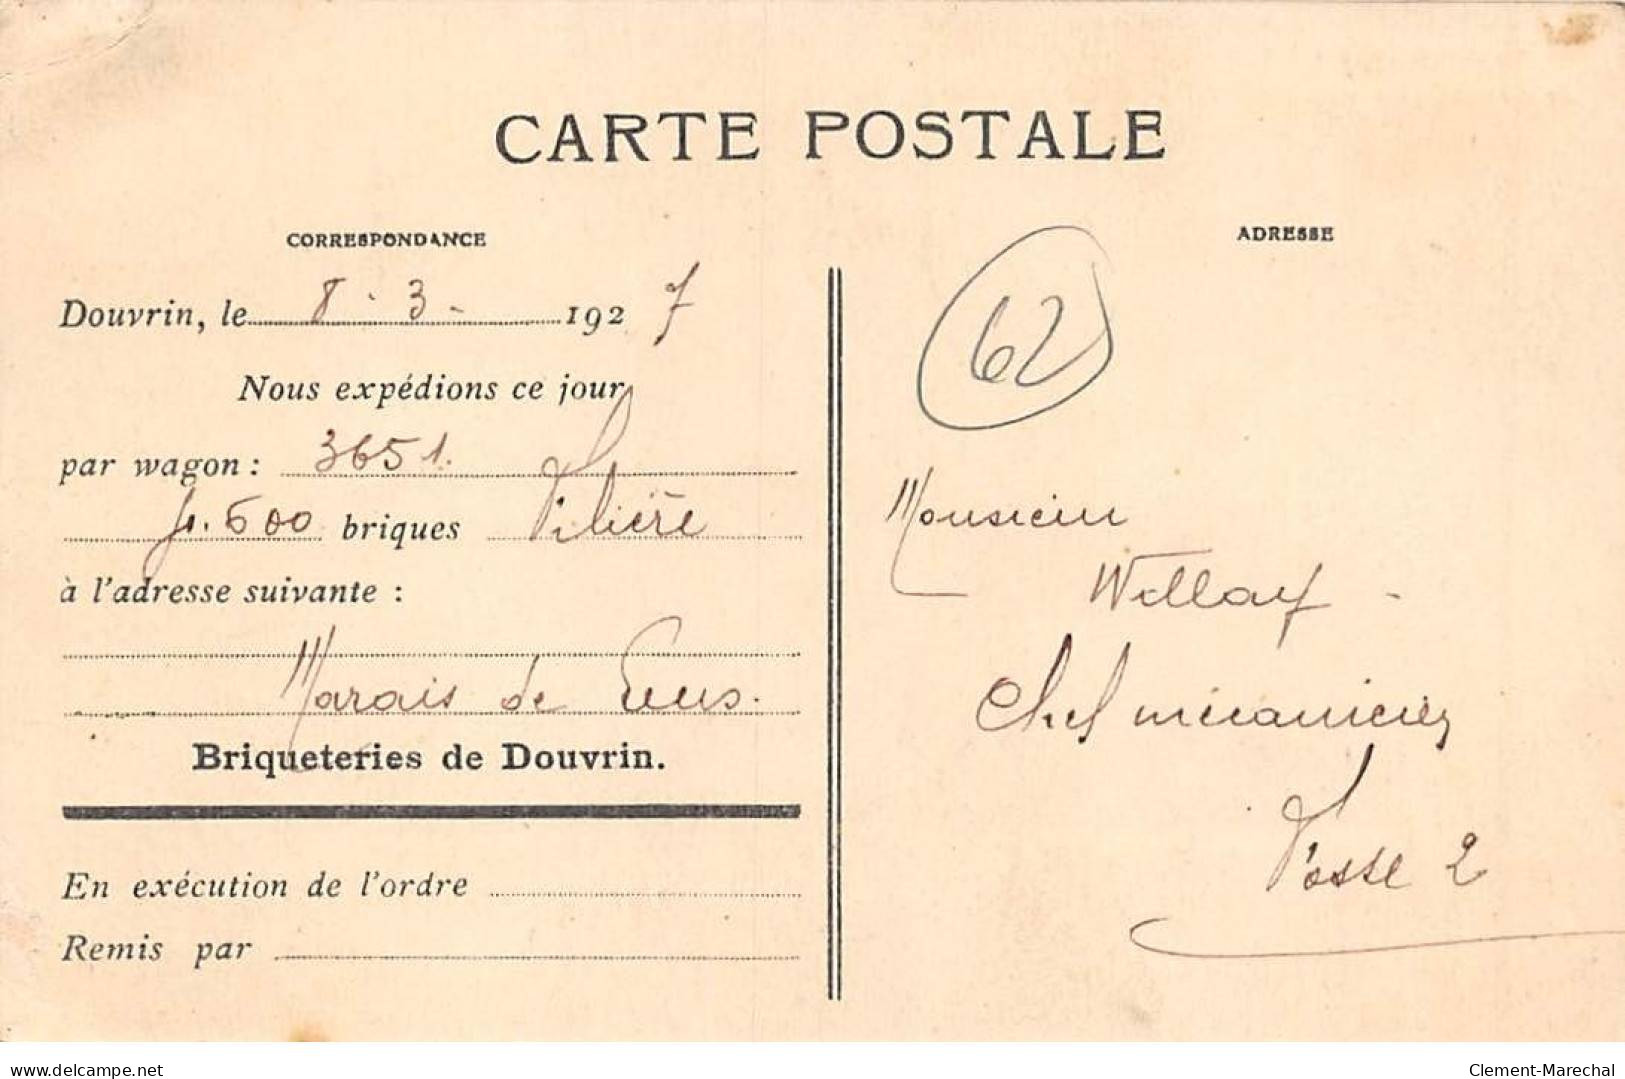 CARTE POSTALE
CORRESPONDANCE
Douvrin, le 8 - 3 - 192 7
Nous expédions ce jour
par wagon : 3651.
600 briques Filière
à l'adresse suivante :
Marais de Lens.
Briqueteries de Douvrin.
En exécution de l'ordre
Remis par
ADRESSE
62
Monsieur
Chef mécanicien
Fosse 2
www.delcampe.net
Clement-Marechal